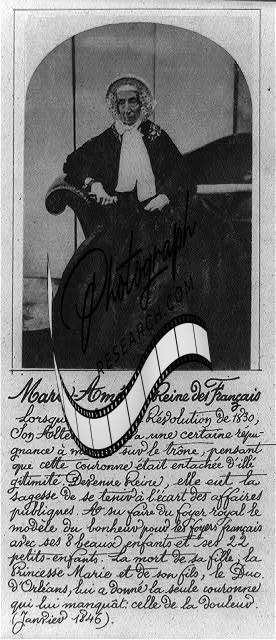 Photograph
RESEARCH.COM
Marie-Amé Reine des Français
Lorsqu Révolution de 1830,
Son Alte a une certaine répu-
gnance à m sur le trône, pensant
que cette couronne était entachée d'illé-
gitimité. Devenue Reine, elle eut la
sagesse de se tenir à l'écart des affaires
publiques. A su faire du foyer royal le
modèle du bonheur pour les foyers français
avec ses 8 beaux enfants et ses 22
petits-enfants. La mort de sa fille, la
Princesse Marie et de son fils, le Duc
d'Orléans, lui a donné la seule couronne
qui lui manquât: celle de la douleur.
(Janvier 1846)